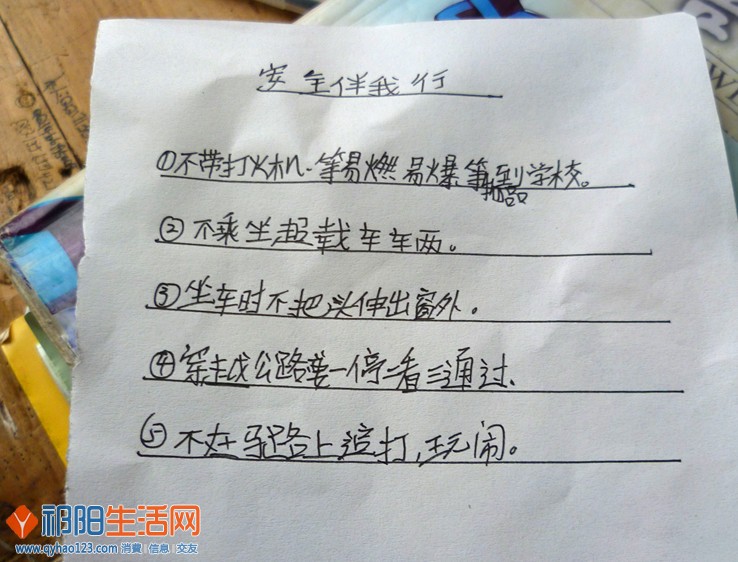 安全伴我行
①不带打火机、等易燃易爆等物品到学校。
②不乘坐超载车车两。
③坐车时不把头伸出窗外。
④穿越公路要一停二看三通过、
⑤不在马路上追打,玩闹。
祁阳生活网
www.qyhao123.com 消费 信息 交友